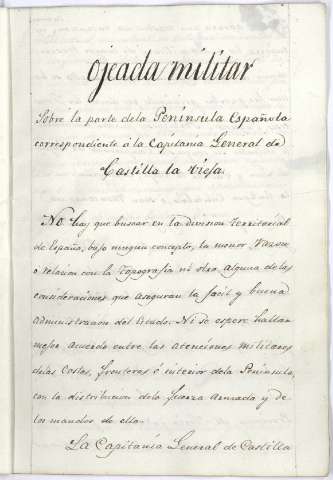 ojeada militar
Sobre la parte dela Península Española
correspondiente á la Capitania General de
Castilla la Vieja.
No hay que buscar en la division territorial
de España, bajo ningun concepto, la menor razon
o relacion con la topografia ni otra alguna de las
consideraciones que aseguran la facil y buena
administracion del Estado. Ni se espere hallar
mejor acuerdo entre las atenciones militares
delas Costas, fronteras é interior dela Península,
con la distribucion dela fuerza armada y de
los mandos de ella.
La Capitanía General de Castilla